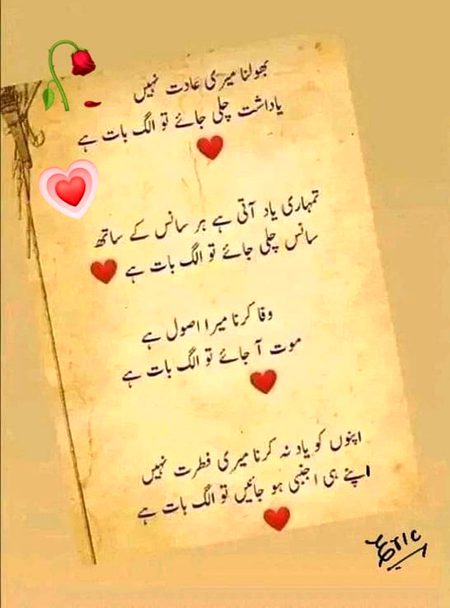 بھولنا میری عادت نہیں
یاداشت چلی جائے تو الگ بات ہے
تمہاری یاد آتی ہے ہر سانس کے ساتھ
سانس چلی جائے تو الگ بات ہے
وفا کرنا میرا اصول ہے
موت آ جائے تو الگ بات ہے
اپنوں کو یاد نہ کرنا میری فطرت نہیں
اپنے ہی اجنبی ہو جائیں تو الگ بات ہے